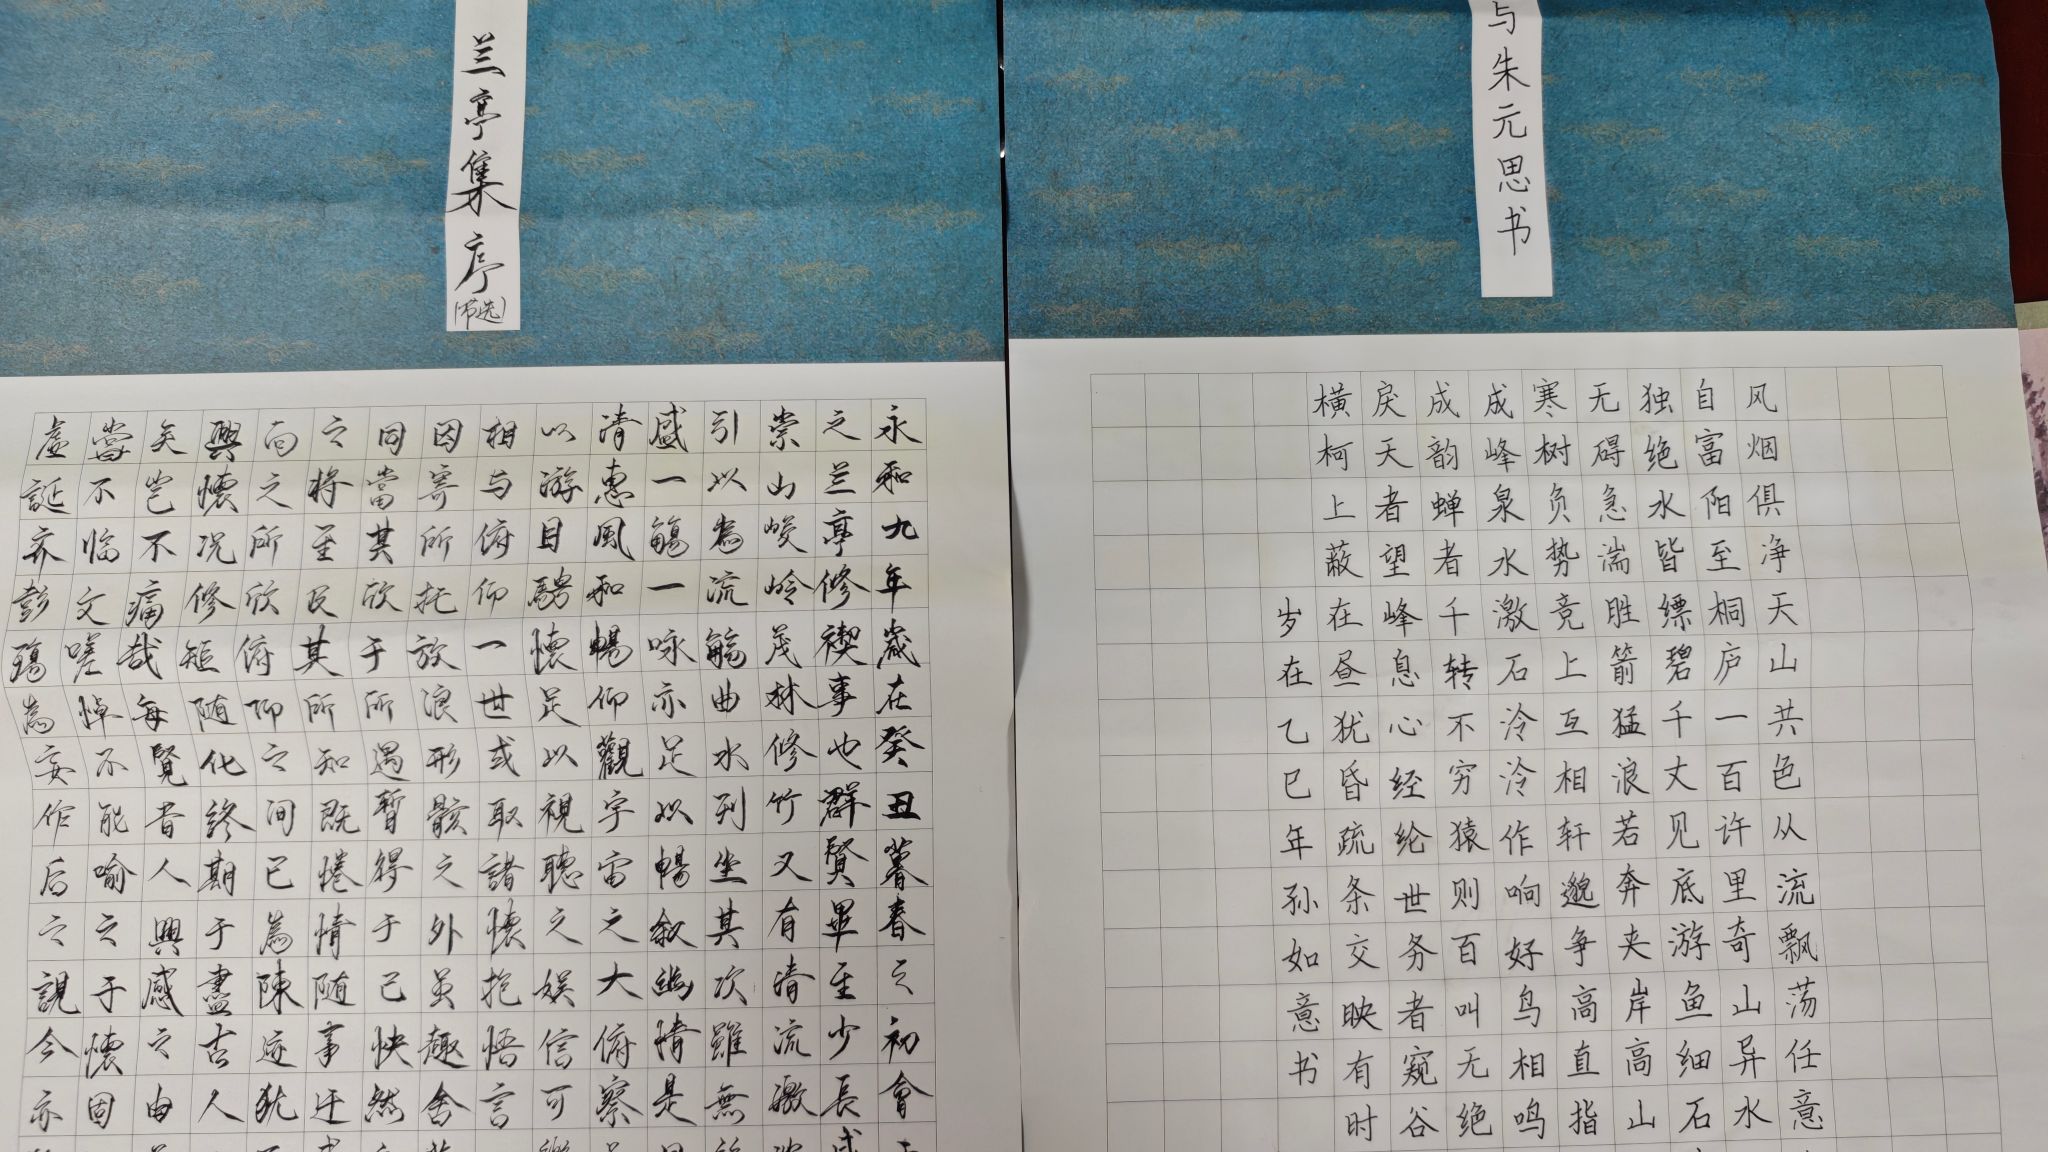 兰亭集序
(节选)
永和九年歲在癸丑暮春之初會
之兰亭修禊事也群賢畢至少長咸
崇山峻岭茂林修竹又有清流激
引以為流觴曲水列坐其次雖無
盛一觴一咏亦足以暢叙幽情是日
清惠風和暢仰觀宇宙之大俯察
以游目騁懷足以視聽之娱信可樂
相与俯仰一世或取諸懷抱悟言
因寄所托放浪形骸之外虽趣舍
同當其欣于所遇暫得于己快然
之将至及其所知既惓情随事迁
向之所欣俯仰之间已為陳迹犹
興懷况修短随化終期于盡古人
矣岂不痛哉每覽昔人興感之由
嘗不临文嗟悼不能喻之于懷固
虚誕齐彭殤為妄作后之視今亦
与朱元思书
风烟俱净天山共色从流飘荡任意
自富阳至桐庐一百许里奇山异水
独绝水皆缥碧千丈见底游鱼细石
无碍急湍胜箭猛浪若奔夹岸高山
寒树负势竞上互相轩邈争高直指
成峰泉水激石泠泠作响好鸟相鸣
成韵蝉者千转不穷猿则百叫无绝
戾天者望峰息心经纶世务者窥谷
横柯上蔽在昼犹昏疏条交映有时
岁在乙巳年孙如意书